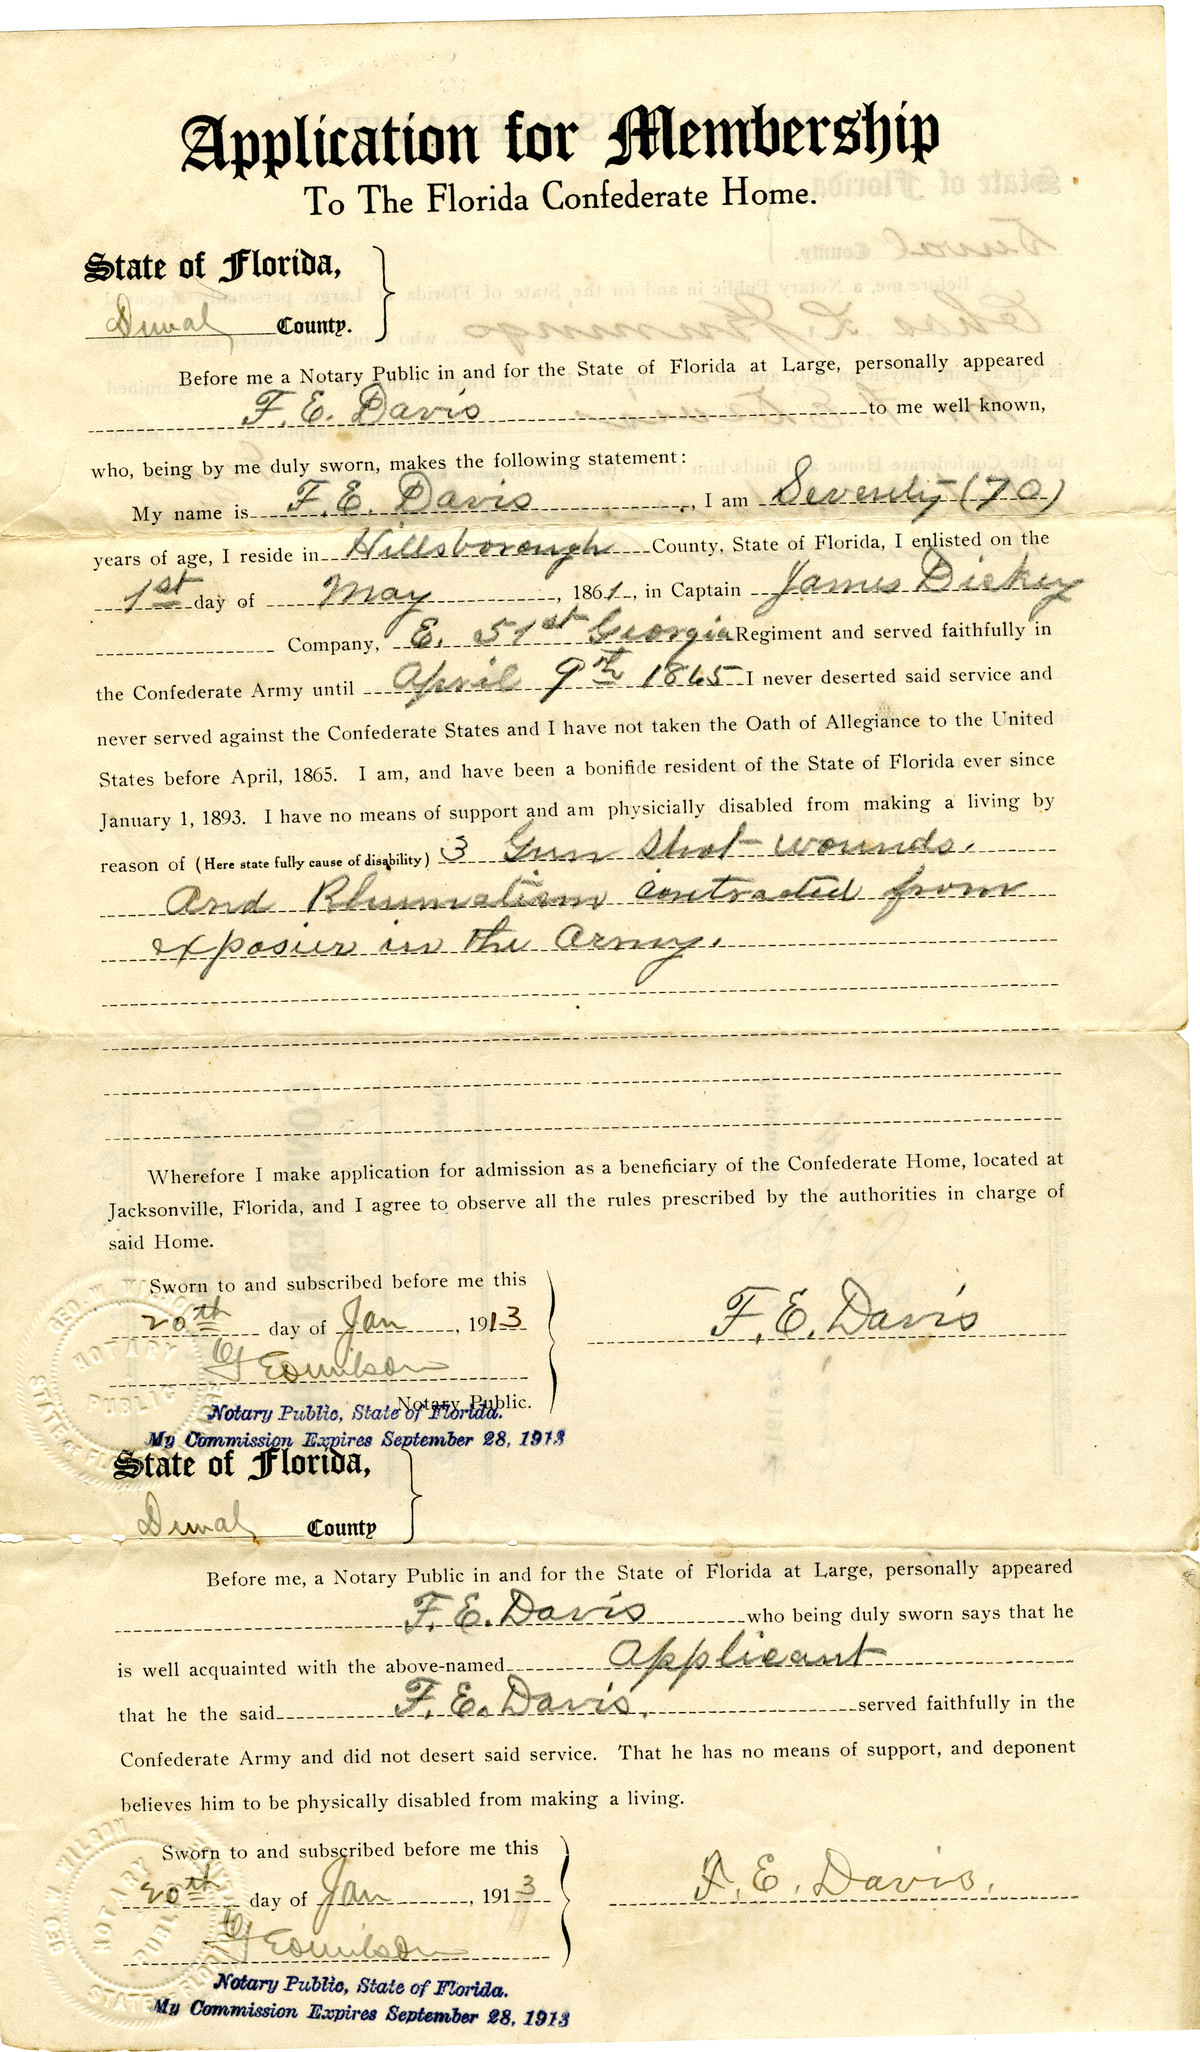 Application for Membership
To The Florida Confederate Home.
State of Florida,
Duval County.
Before me a Notary Public in and for the State of Florida at Large, personally appeared
F. E. Davis to me well known,
who, being by me duly sworn, makes the following statement:
My name is F. E. Davis, I am Seventy (70)
years of age, I reside in Hillsborough County, State of Florida, I enlisted on the
1st day of May, 1861, in Captain James Dickey
Company, E. 51st Georgia Regiment and served faithfully in
the Confederate Army until April 9th 1865 I never deserted said service and
never served against the Confederate States and I have not taken the Oath of Allegiance to the United
States before April, 1865. I am, and have been a bonifide resident of the State of Florida ever since
January 1, 1893. I have no means of support and am physicially disabled from making a living by
reason of (Here state fully cause of disability) 3 Gun Shot wounds.
And Rhumatism contracted from
exposier in the Army.
Wherefore I make application for admission as a beneficiary of the Confederate Home, located at
Jacksonville, Florida, and I agree to observe all the rules prescribed by the authorities in charge of
said Home.
Sworn to and subscribed before me this
20th day of Jan, 1913
F. E. Davis
Geo W Wilson
Notary Public.
Notary Public, State of Florida.
My Commission Expires September 28, 1913
GEO. W. WILSON
NOTARY
PUBLIC
STATE OF FLORIDA
State of Florida,
Duval County
Before me, a Notary Public in and for the State of Florida at Large, personally appeared
F. E. Davis who being duly sworn says that he
is well acquainted with the above-named Applicant
that he the said F. E. Davis. served faithfully in the
Confederate Army and did not desert said service. That he has no means of support, and deponent
believes him to be physically disabled from making a living.
Sworn to and subscribed before me this
20th day of Jan, 1913
F. E. Davis.
Geo W Wilson
Notary Public, State of Florida.
My Commission Expires September 28, 1913
GEO. W. WILSON
NOTARY
PUBLIC
STATE OF FLORIDA